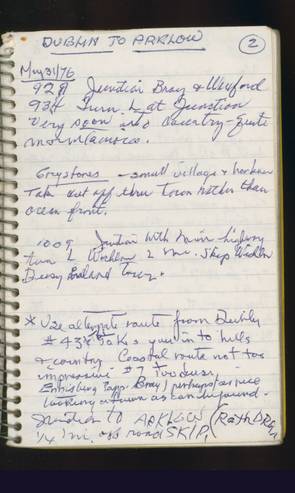 DUBLIN TO ARKLOW
2
May 31/76
928 Junction Bray & Wexford
934 Turn L at Junction
Very soon into Country - quite
mountainous.
Greystones - small village & harbour
Take cut off thru town rather than
ocean front.
1009 Junction with main highway
turn L Wicklow 2 mi. Skip Wicklow
Busy Inland town.
* Use alternate route from Dublin
#43 Takes you into hills
& country Coastal route not too
impressive #7 Too busy.
Bray perhaps as nice
looking a town as can be found.
Junction to ARKLOW (Rathdrum
1/4 mi. off road SKIP.